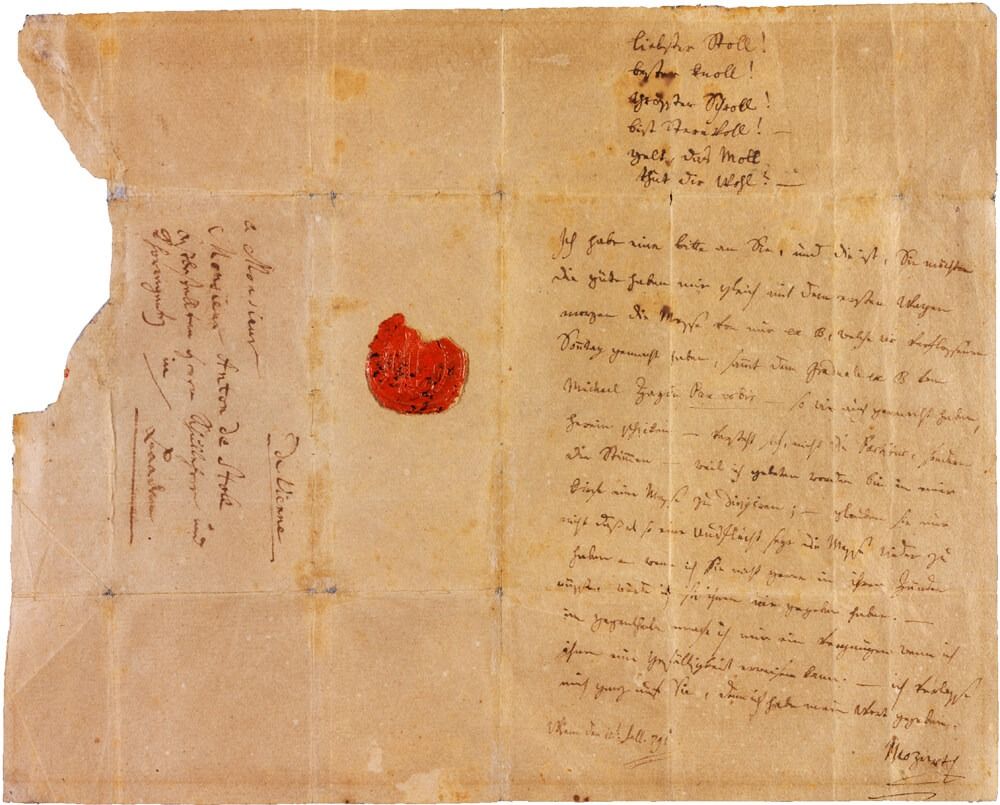 liebster Stoll!
bester knoll!
grösster Schroll!
bist Sternvoll! —
gelt, das Moll
thut dir Wohl? —
Ich habe eine bitte an Sie, und die ist, Sie möchten
die güte haben mir gleich mit dem ersten Wagen
morgen die Messe von mir ex B, welche wir verflossenen
Sonntag gemacht haben, sammt dem Graduale ex B vom
Michael Haydn Pax vobis — so wir auch gemacht haben,
herein schicken — versteht sich, nicht die Partitur, sondern
die Stimmen — weil ich gebeten worden bin in einer
kirche eine Messe zu dirigiren; — glauben sie nur
nicht daß es so eine Ausflucht seye die Messe wieder zu
haben — wenn ich sie nicht gerne in ihren Händen
wüsste, würde ich sie ihnen nie gegeben haben. —
im gegentheile mache ich mir ein Vergnügen wenn ich
ihnen eine gefälligkeit erweisen kann. — ich verlasse
mich ganz auf Sie, denn ich habe mein Wort gegeben.
Mozart
Wien den 12t Jull. 791
de Vienne
a Monsieur
Monsieur Anton de Stoll
bestellten Herrn Schullehrer und
Chorregenten
in
Baaden.